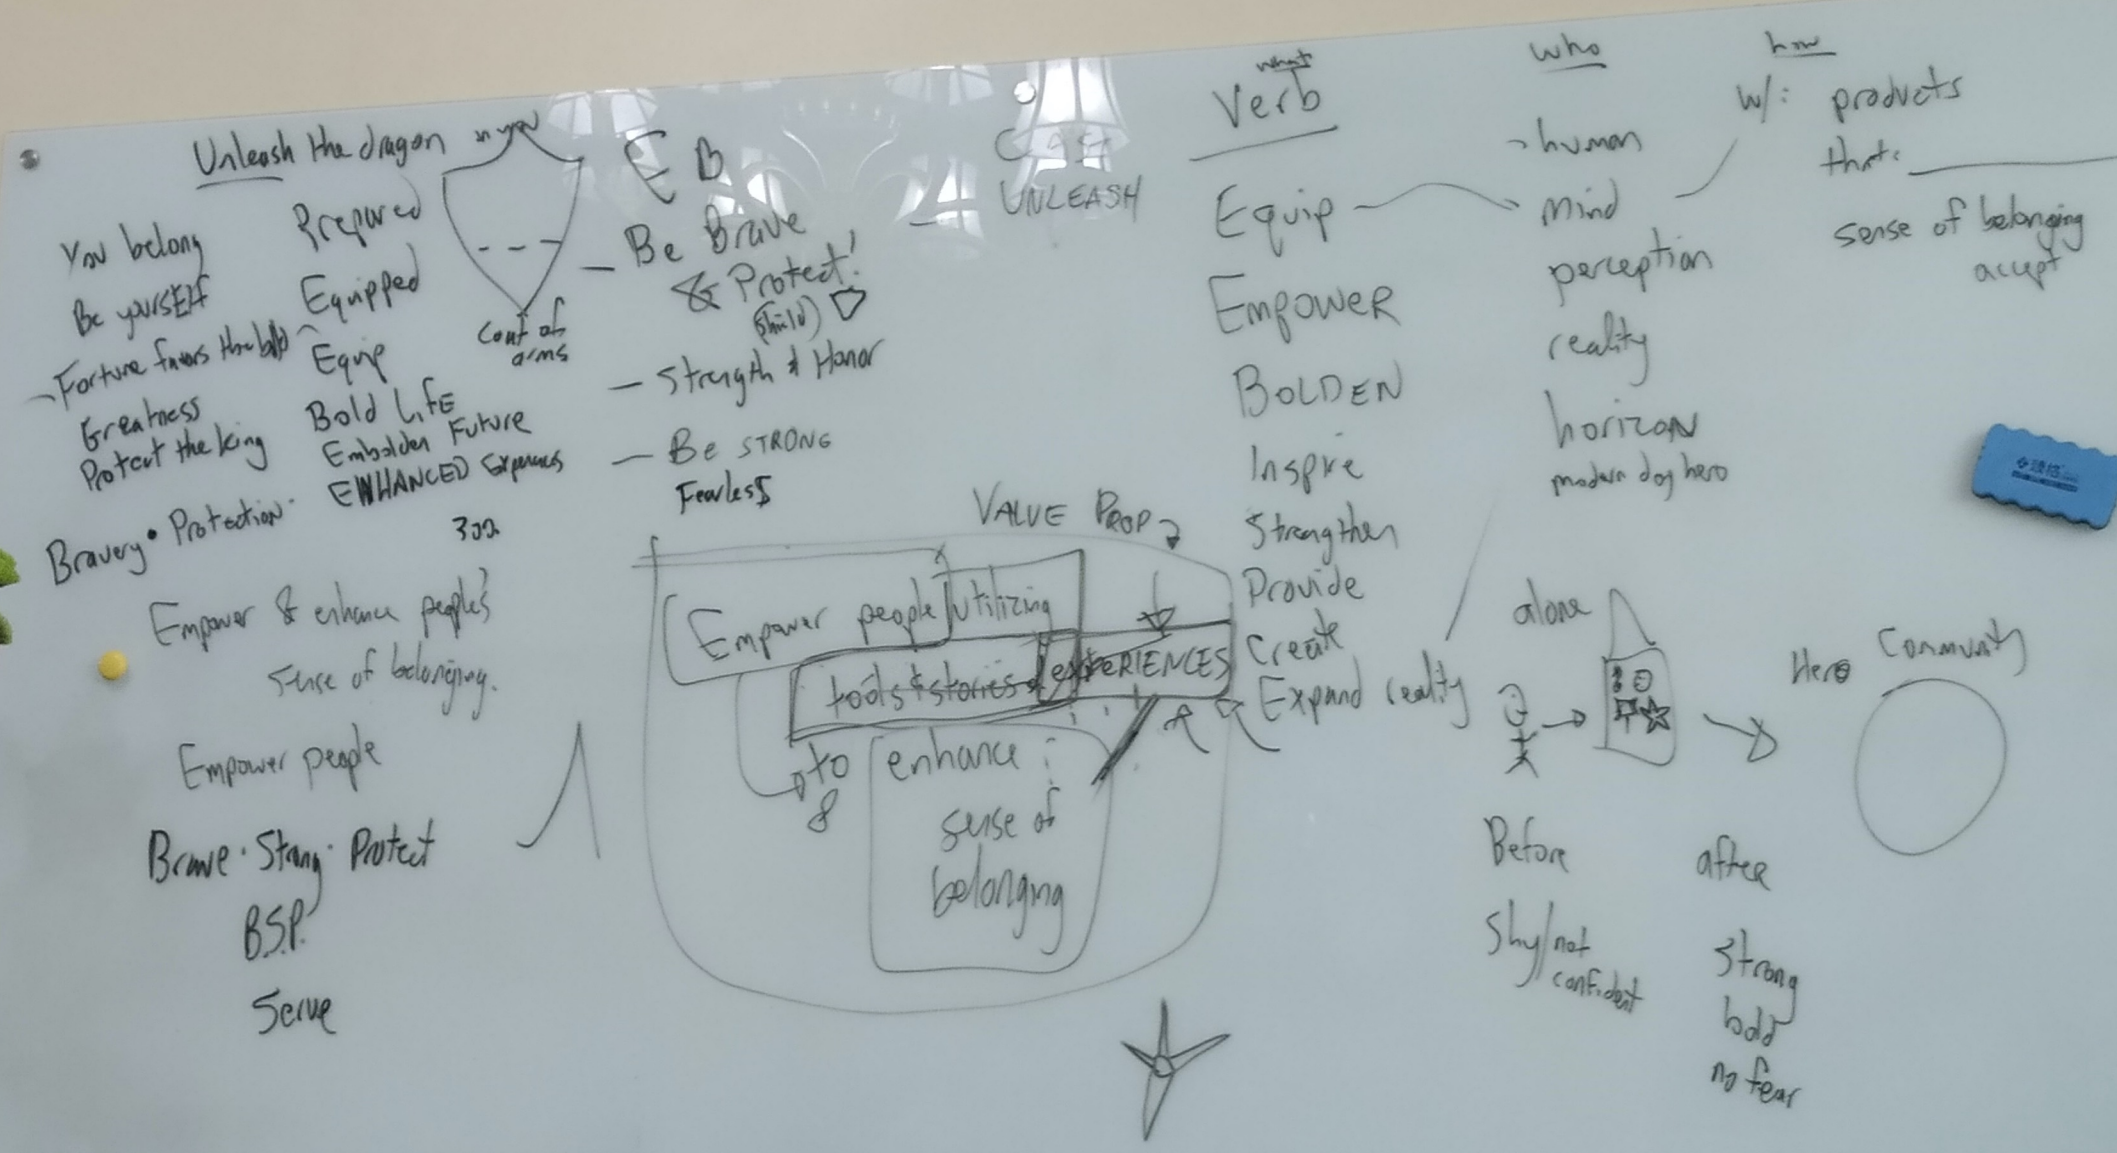 Unleash the dragon in you
You belong
Be yourself
Fortune favors the bold
Greatness
Protect the king
Bravery • Protection
Prepared
Equipped
Equip
Bold Life
Embolden Future
ENHANCED Experiences
coat of
arms
EB
- Be Brave
& Protect!
(Shield)
- Strength & Honor
- Be STRONG
Fearless
UNLEASH
Empower & enhance people's
sense of belonging.
Empower people
Brave · Strong · Protect
B.S.P.
Serve
VALUE PROP
Empower people utilizing
tools & stories & experiences
to
enhance
sense of
belonging
what
Verb
Equip
Empower
BOLDEN
Inspire
Strengthen
Provide
Create
Expand reality
who
human
mind
perception
reality
horizon
modern dog hero
how
w/: products
that:
sense of belonging
accept
alone
Hero Community
Before
Shy/not
confident
after
Strong
bold
no fear